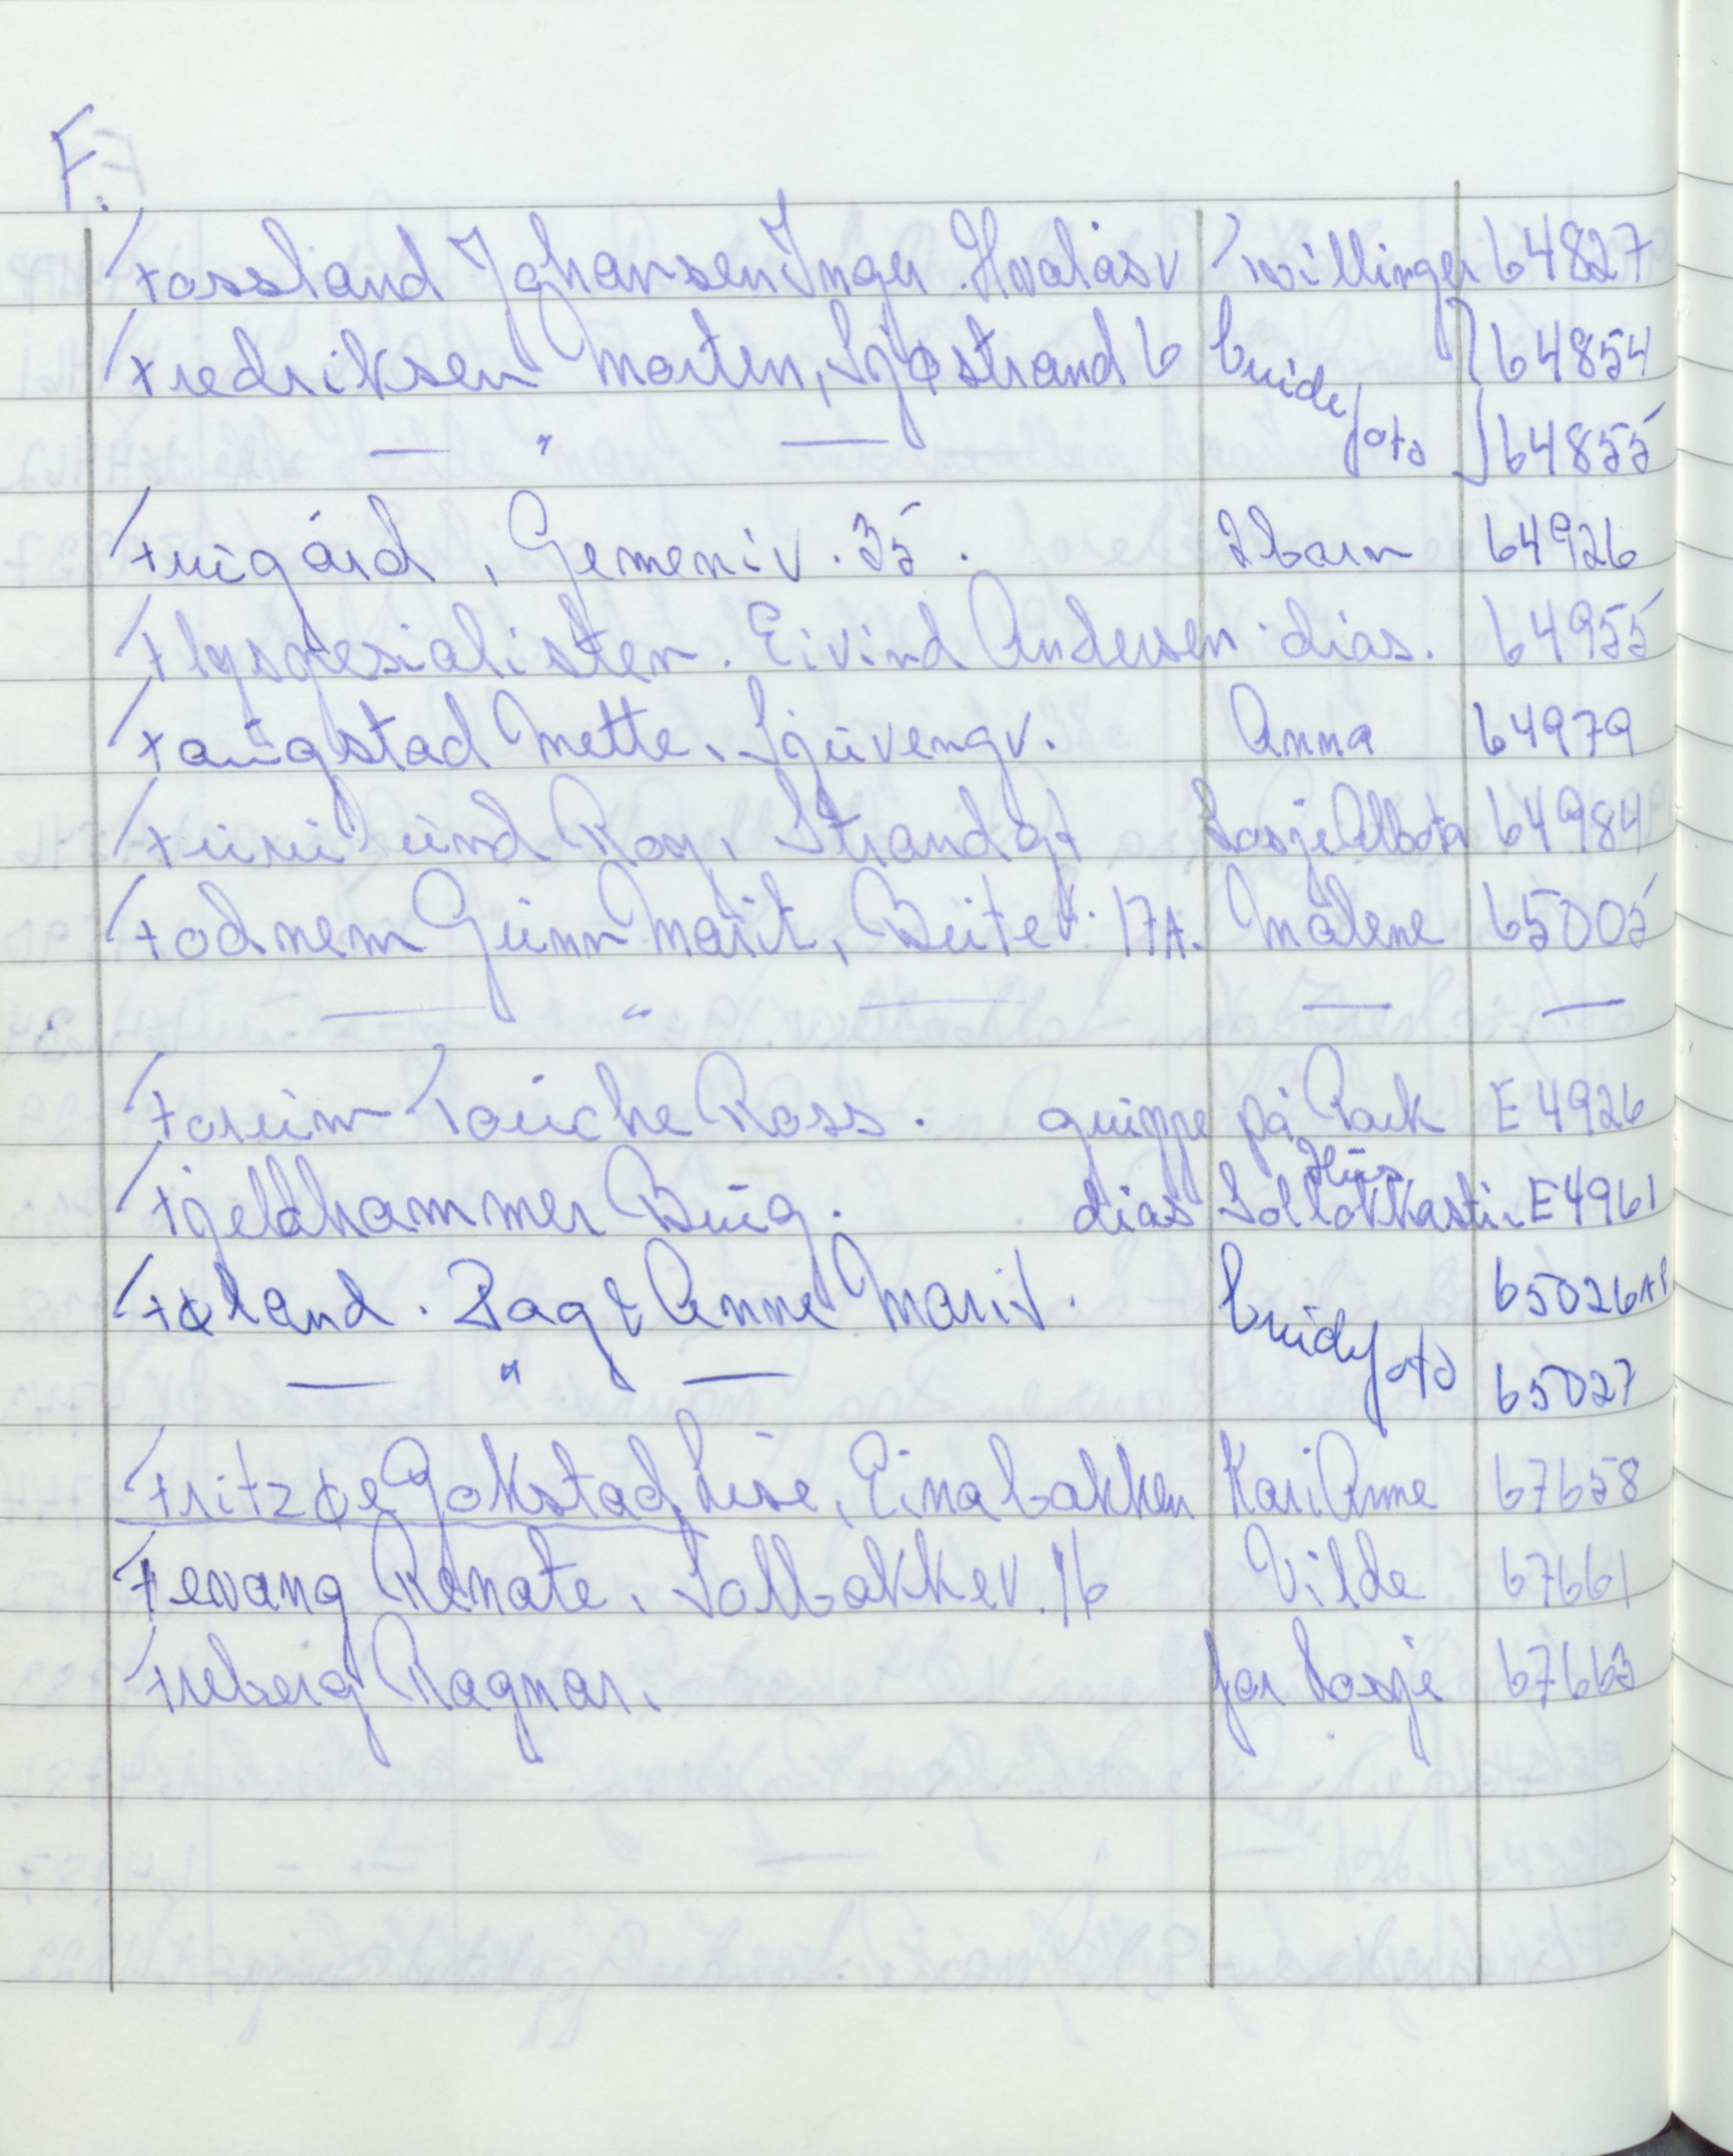 F.
Fossland Johansen Inger. Hvalåsv Tvillinger 64827
Fredriksen Morten, Sjøstrand 6 brude 64854
— " — foto 64855
Frigård, Gemeniv. 35. 2 barn 64926
Flyspesialisten. Eivind Andersen. dias. 64955
Faugstad Mette, Sjuvengv. Anna 64979
Furulund Roy, Strandgt Losje 64984
Fodnem Gunn Marit, 17A. Malene 65005
— " — — —
Forum Touche Ross. gruppe på Park E 4926
Fjeldhammer Brug. dias Hus E 4961
Føland. Dag & Anne Marit. brude 65026
— " — foto 65027
Fritzøe Gokstad Lise, Einabakken Kari Anne 67658
Fevang Renate, Solbakkev. 16 Vilde 67661
Freberg Ragnar. for Losje 67663